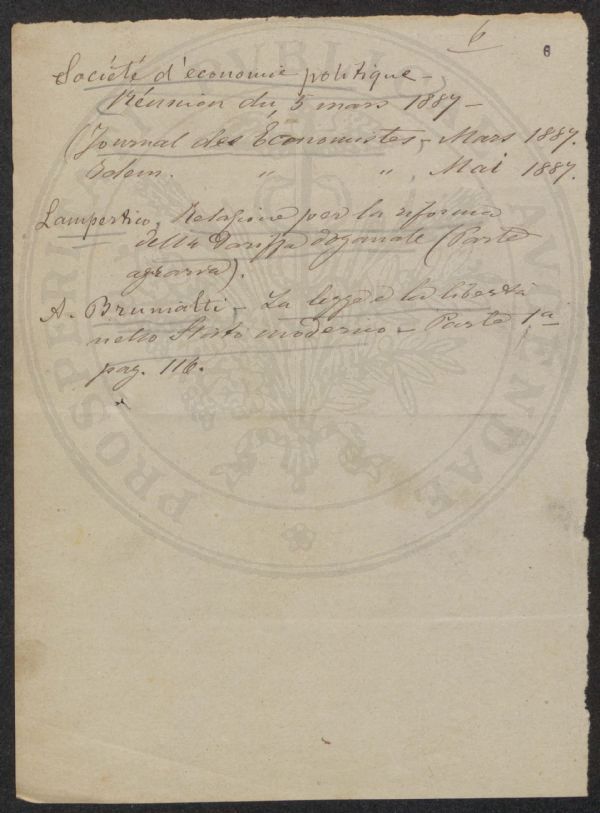 6
6
Société d'economie politique -
Réunion du 5 mars 1887 -
(Journal des Économistes, - Mars 1887.
Idem. " " , Mai 1887.
Lampertico, Relazione per la riforma
della Tariffa doganale (Parte
agraria).
A. Brunialti - La legge e la libertà
nello Stato moderno - Parte 1a
pag. 116.
PROSPERITATI PUBLICAE AUGENDAE